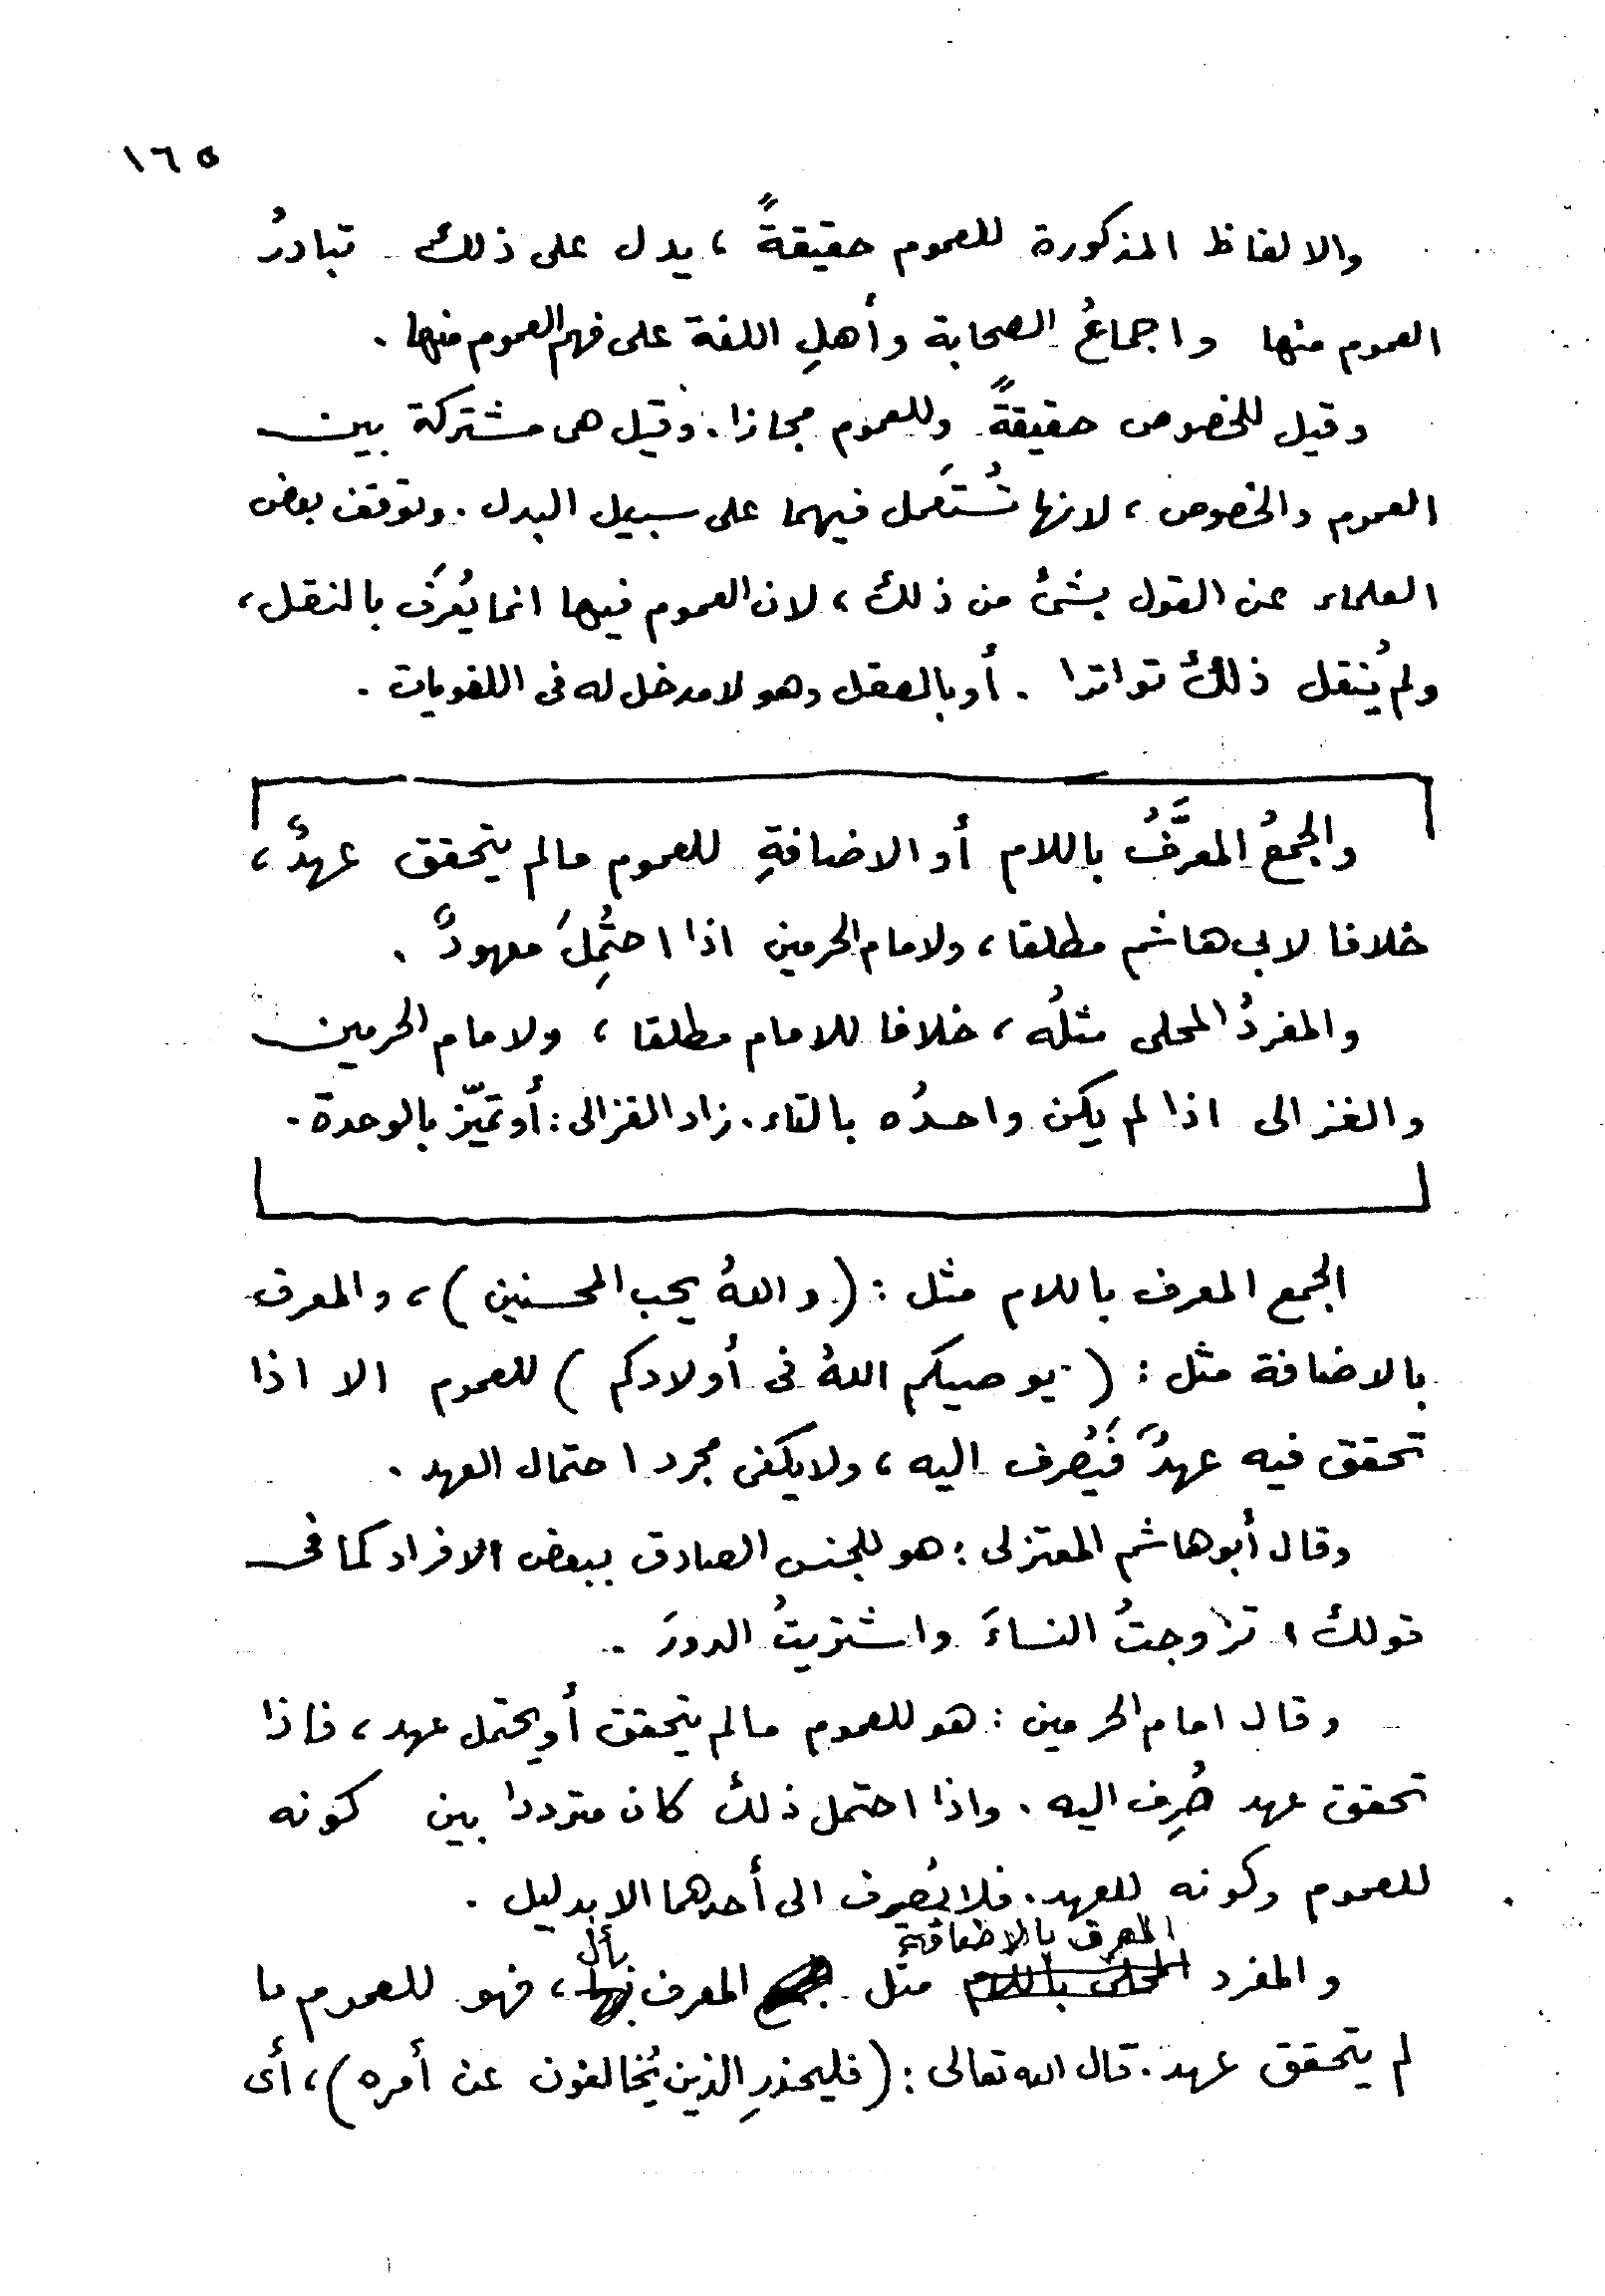 ١٦٥
والالفاظ المذكورة للعموم حقيقةً ، يدل على ذلك تبادرُ
العموم منها واجماعُ الصحابة وأهلِ اللغة على فهم العموم منها .
وقيل للخصوص حقيقةً وللعموم مجازا . وقيل هى مشتركة بين
العموم والخصوص ، لانها تُستَعمل فيهما على سبيل البدل . وتوقف بعض
العلماء عن القول بشئ من ذلك ، لان العموم فيها انما يُعرَف بالنقل ،
ولم يُنقل ذلك تواترا . أو بالعقل وهو لا مدخل له فى اللغويات .
والجمعُ المعرَّفُ باللام أو الاضافةِ للعموم مالم يتحقق عهدٌ ،
خلافا لابى هاشم مطلقا ، ولامام الحرمين اذا احتُمِلَ معهودٌ .
والمفردُ المحلى مثلُه ، خلافا للامام مطلقا ، ولامام الحرمين
والغزالى اذا لم يكن واحدُه بالتاء . زاد الغزالى : أو تميّز بالوحدة .
الجمع المعرف باللام مثل : ( واللهُ يحب المحسنين ) ، والمعرف
بالاضافة مثل : ( يوصيكم اللهُ فى أولادكم ) للعموم الا اذا
تحقق فيه عهدٌ فَيُصَرف اليه ، ولايكفى مجرد احتمال العهد .
وقال أبو هاشم المعتزلى : هو للجنس الصادق ببعض الافراد كما فى
قولك : تزوجتُ النساءَ واشتريتُ الدررَ .
وقال امام الحرمين : هو للعموم مالم يتحقق أو يحتمل عهد ، فاذا
تحقق عهد صُرِف اليه . واذا احتمل ذلك كان مترددا بين كونه
للعموم وكونه للعهد . فلا يُصرف الى أحدهما الا بدليل .
المعرف بالاضافة بأل
والمفرد المحلى باللام مثل المعرف ، فهو للعموم ما
لم يتحقق عهد . قال الله تعالى : ( فليحذرِ الذين يُخالفون عن أمره ) ، أى